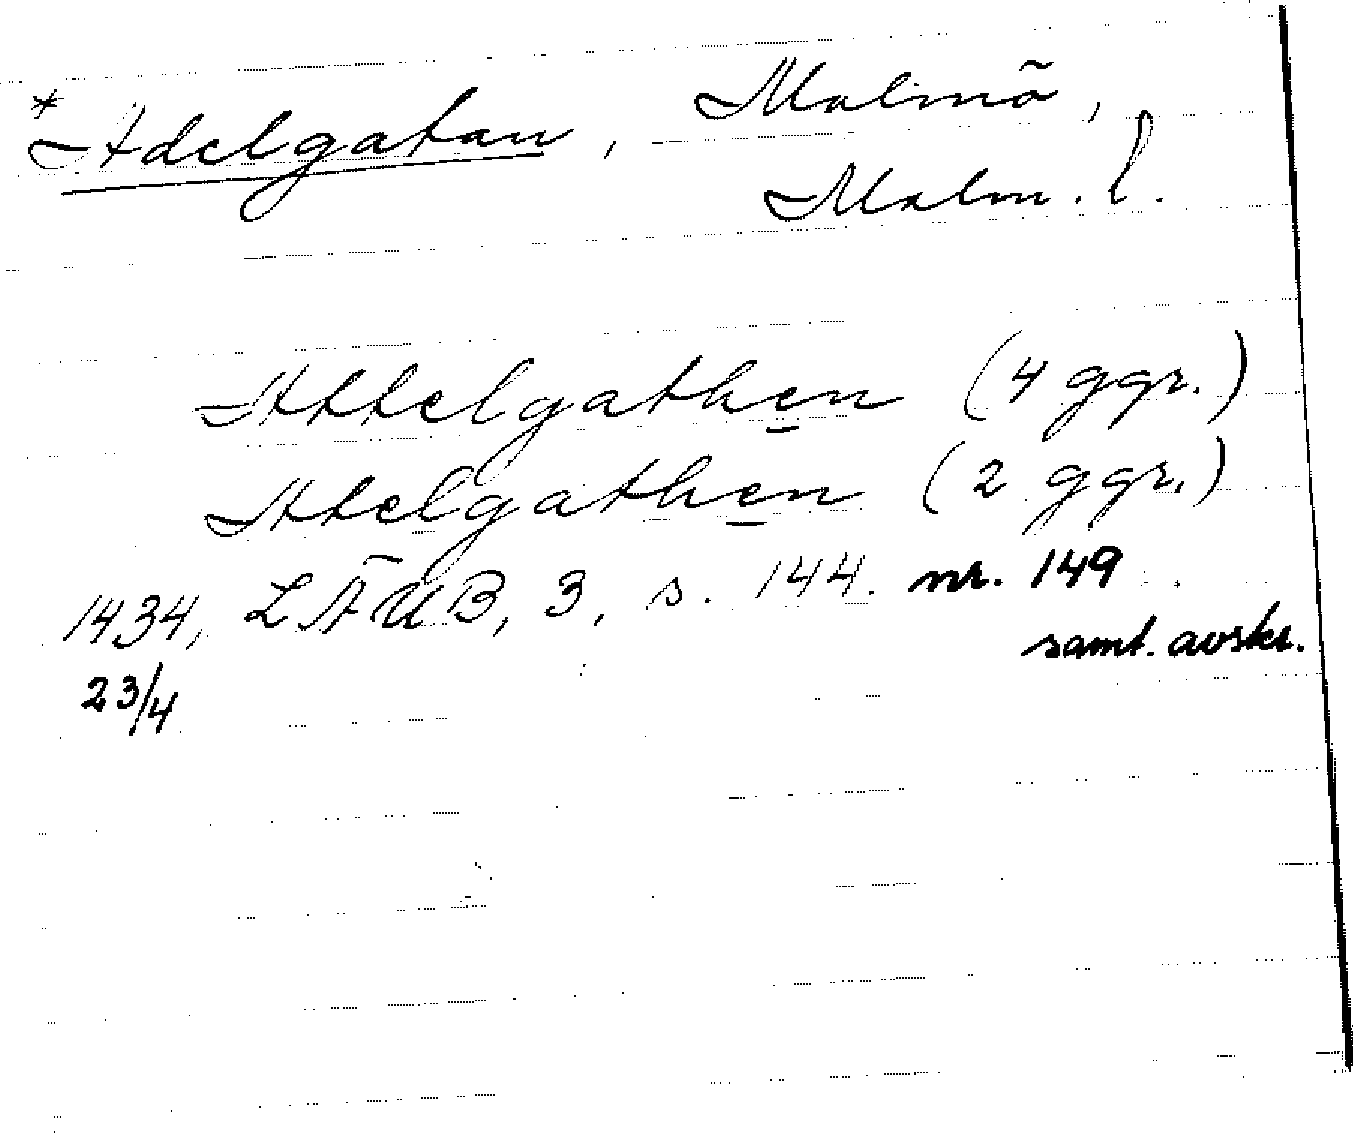 *Adelgatan, Malmö,
Malm. l.
Attelgathen (4 ggr.)
Atelgathen (2 ggr.)
1434, LÄUB, 3, s. 144. nr. 149
23/4 samt. avskr.